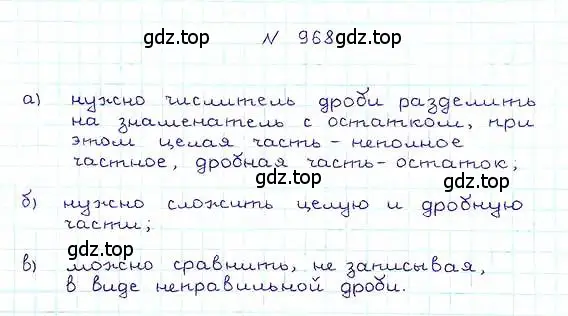 gdz.top N 968 gdz.top
а) нужно числитель дроби разделить
на знаменатель с остатком, при
этом целая часть - неполное
частное, дробная часть - остаток;
gdz.top
б) нужно сложить целую и дробную
части;
gdz.top
в) можно сравнить, не записывая,
в виде неправильной дроби.
gdz.top